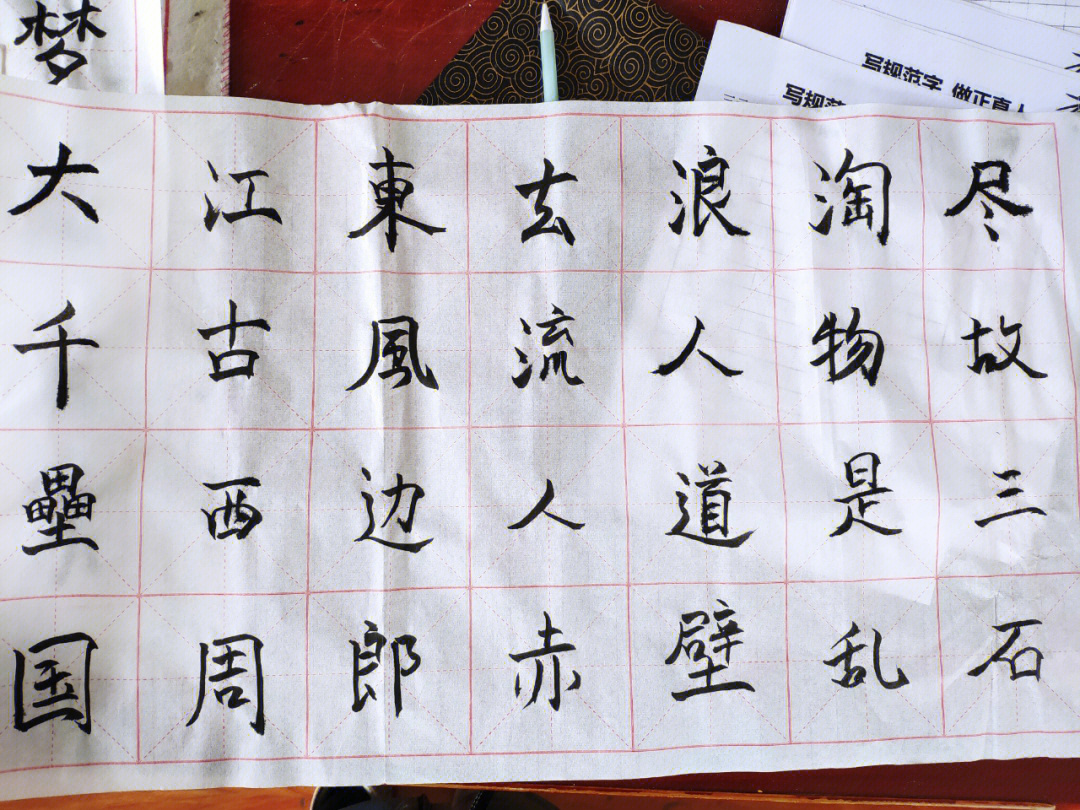 梦
写规范字 做正真人
写规范
大江東去浪淘尽
千古風流人物故
壘西边人道是三
国周郎赤壁乱石